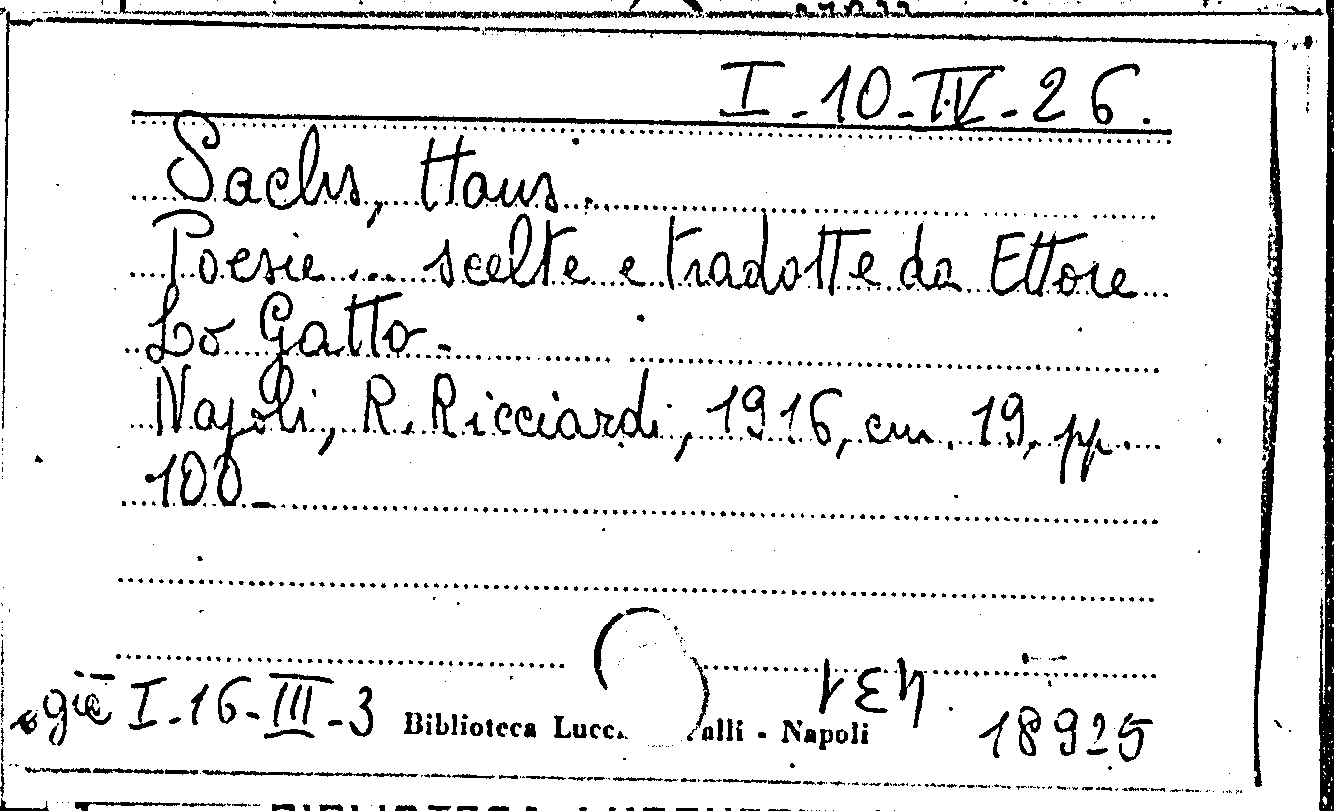 I-10-IV-26.
Sachs, Hans.
Poesie ... scelte e tradotte da Ettore
Lo Gatto.-
Napoli, R. Ricciardi, 1916, cm. 19, pp.
100-
già I-16-III-3
Biblioteca Lucc alli - Napoli
18925